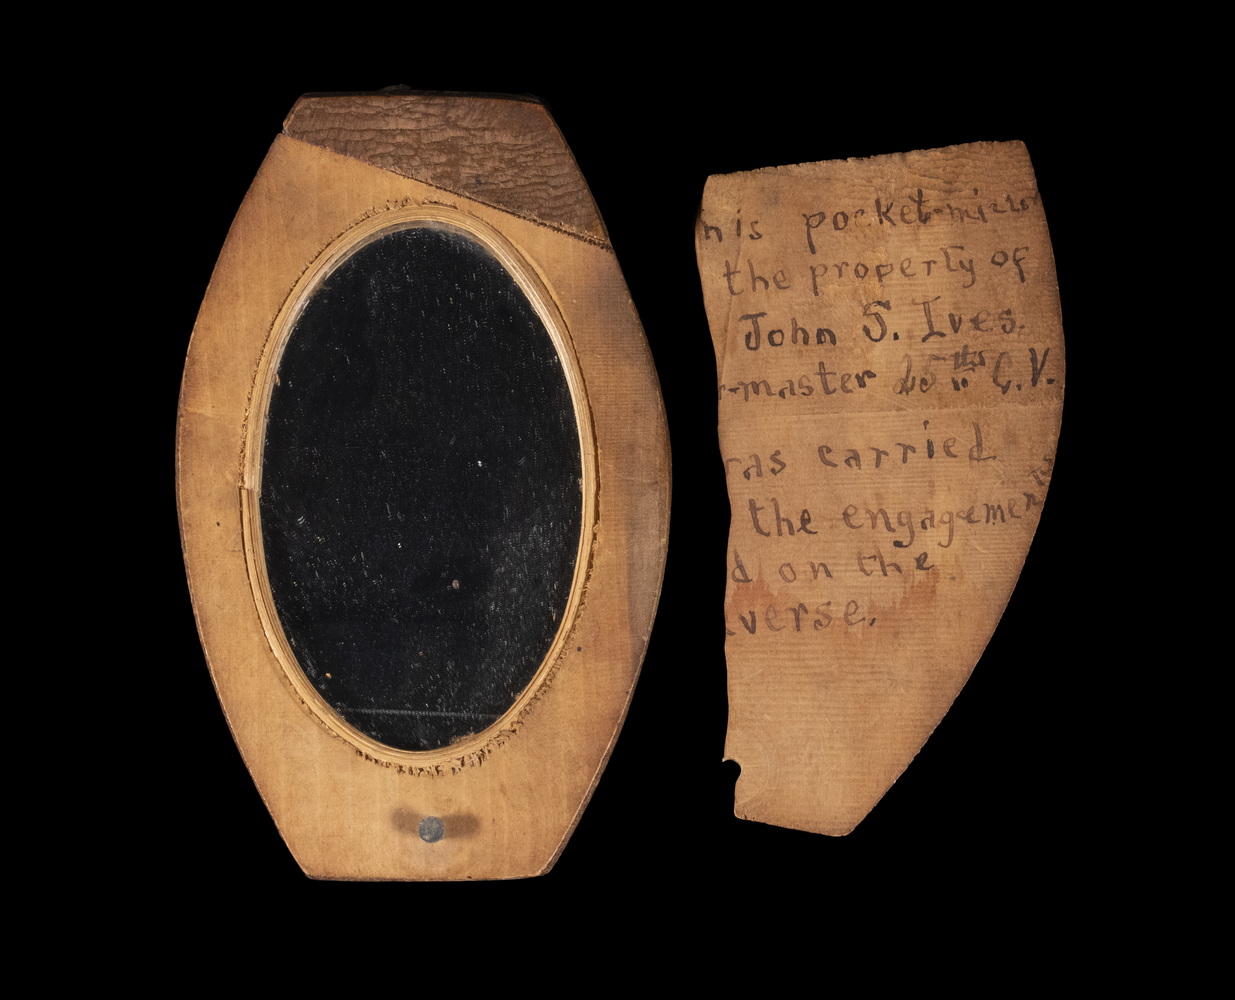 his pocket-mirror
the property of
John S. Ives.
r-master 15th C.V.
as carried
the engagements
d on the
verse.